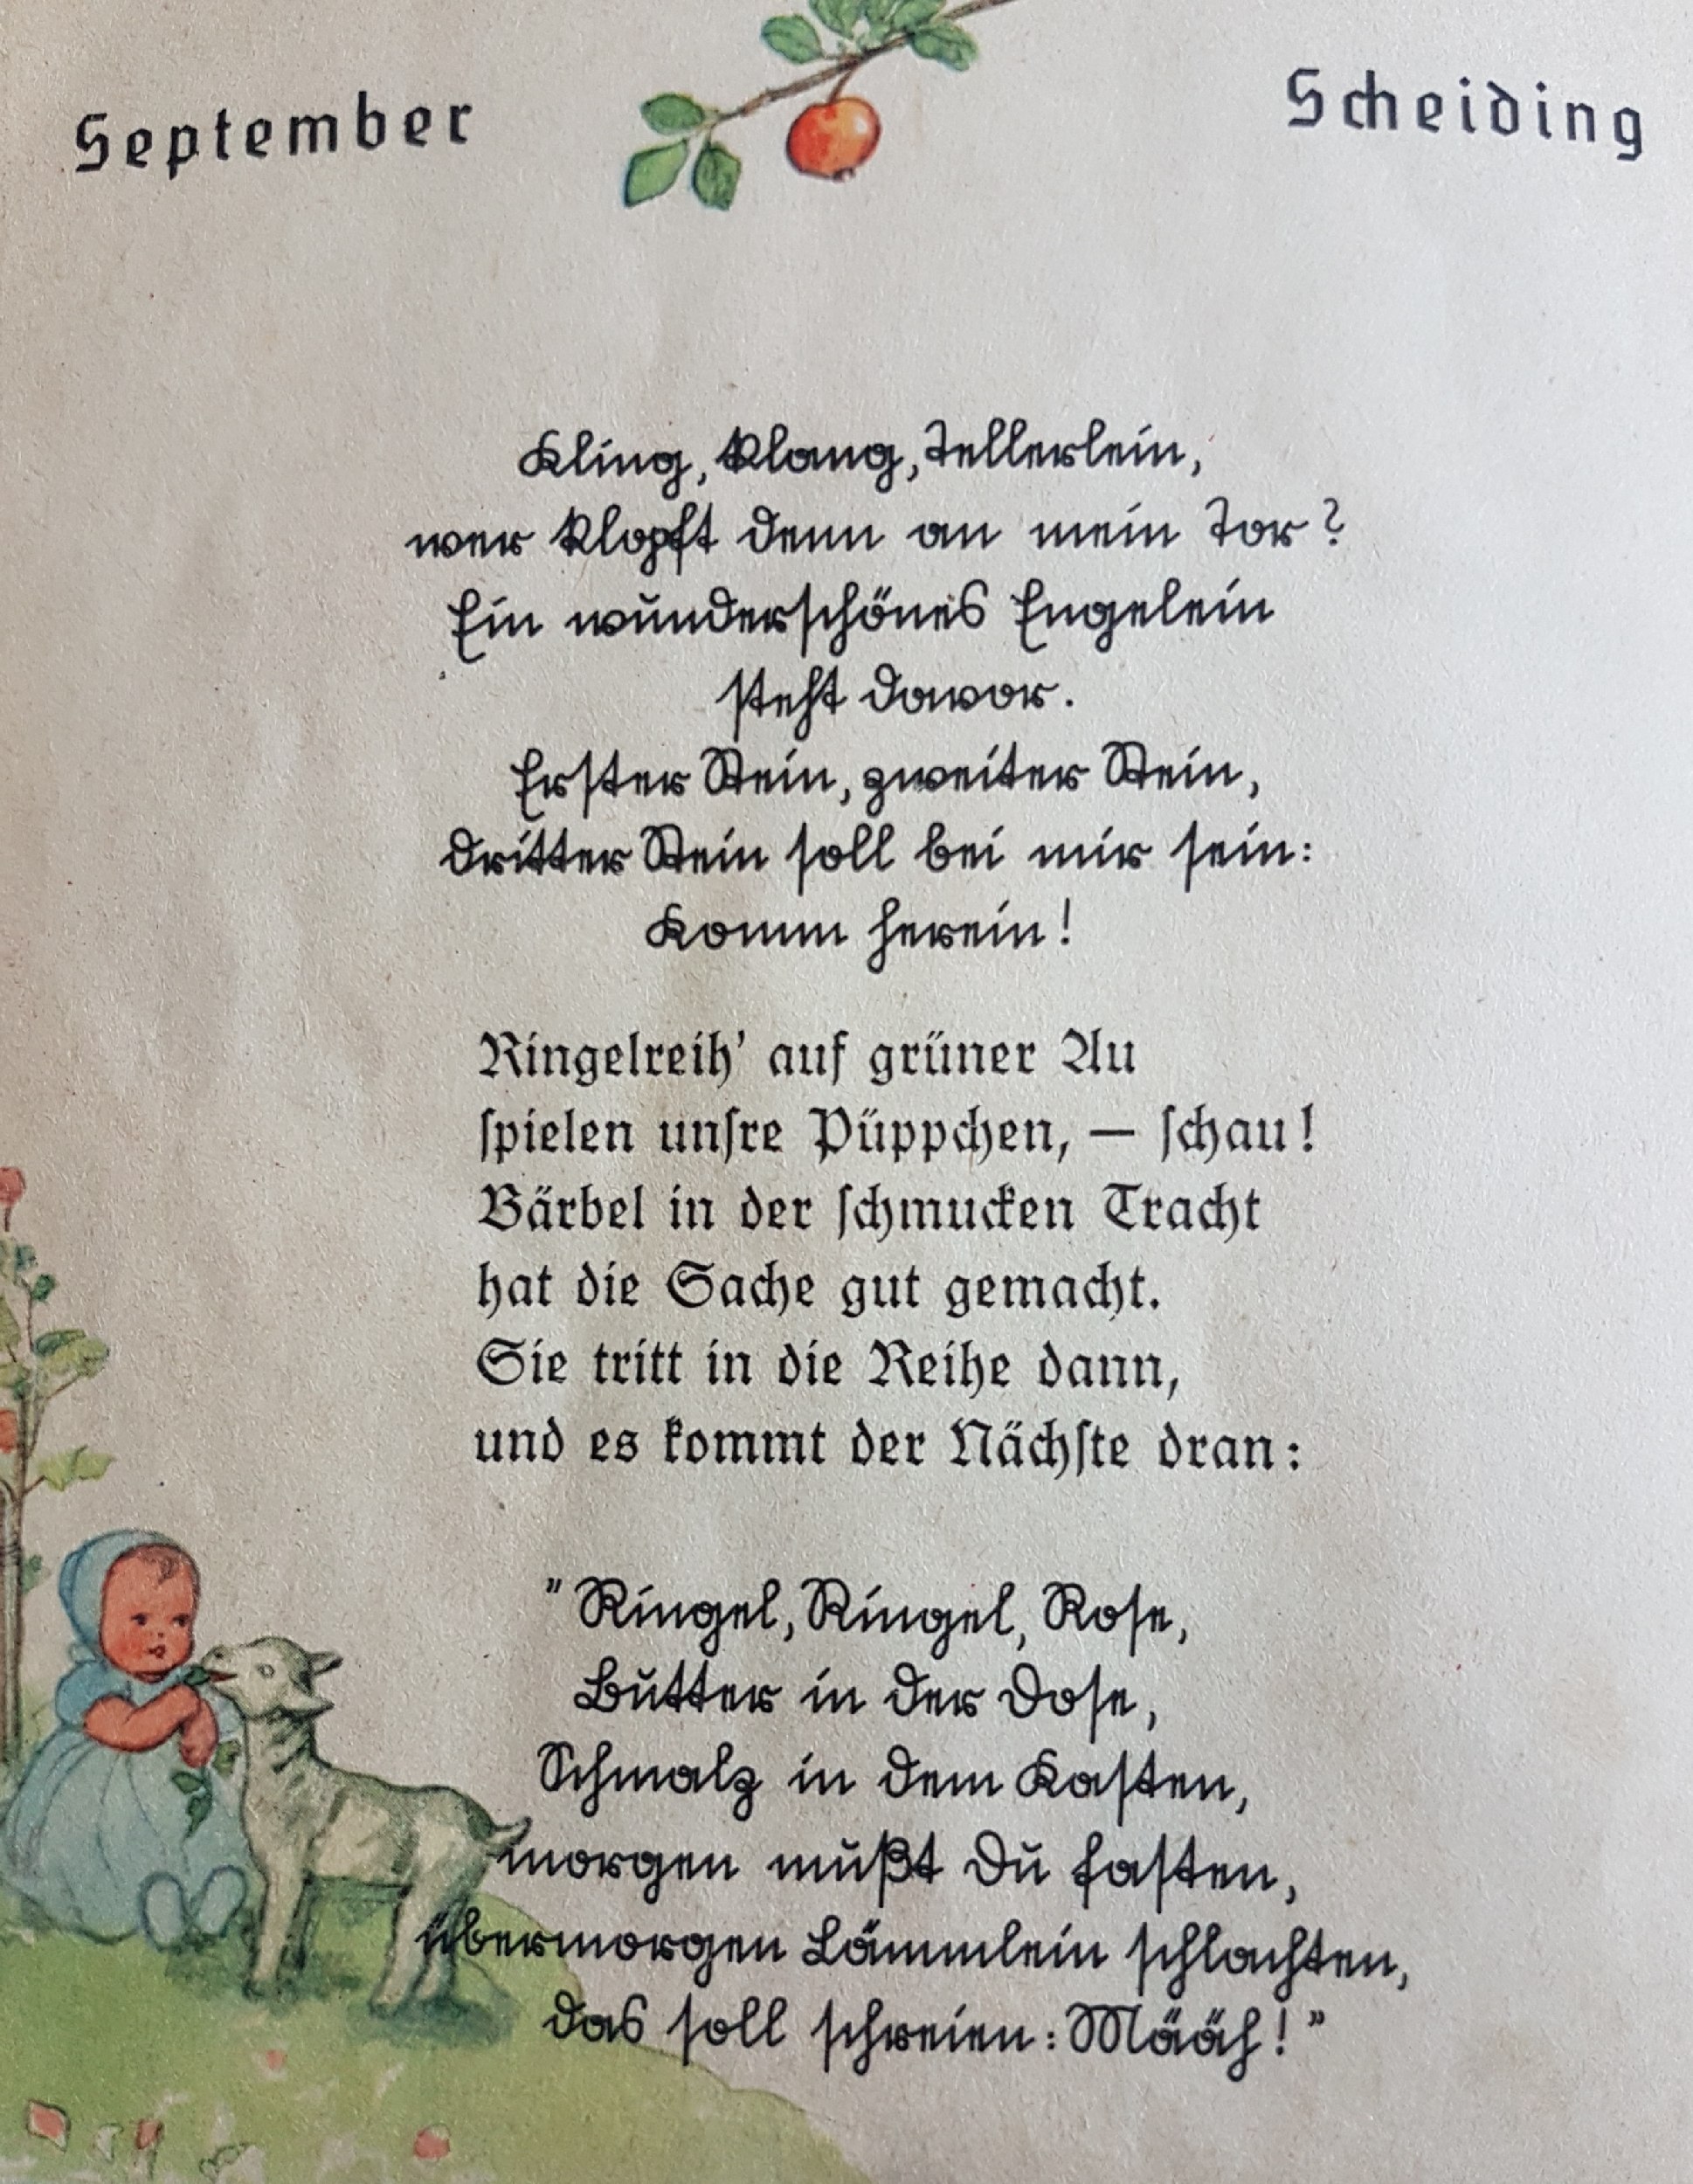 September
Scheiding
Kling, klang, Tellerlein,
wer klopft denn an mein Tor?
Ein wunderschönes Engelein
steht davor.
Erster Stein, zweiter Stein,
dritter Stein soll bei mir sein:
Komm herein!
Ringelreih' auf grüner Au
spielen unsre Püppchen, — schau!
Bärbel in der schmucken Tracht
hat die Sache gut gemacht.
Sie tritt in die Reihe dann,
und es kommt der Nächste dran:
"Ringel, Ringel, Rose,
Butter in der Dose,
Schmalz in dem Kasten,
morgen mußt Du fasten,
übermorgen Lämmlein schlachten,
das soll schreien: Määh!"